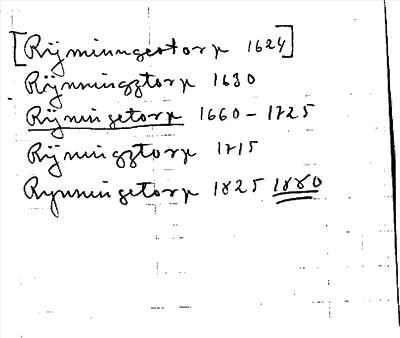 [Rijminngestorp 1624]
Rijnningztorp 1630
Rijningetorp 1660-1725
Rijningztorp 1715
Rynningetorp 1825 1880